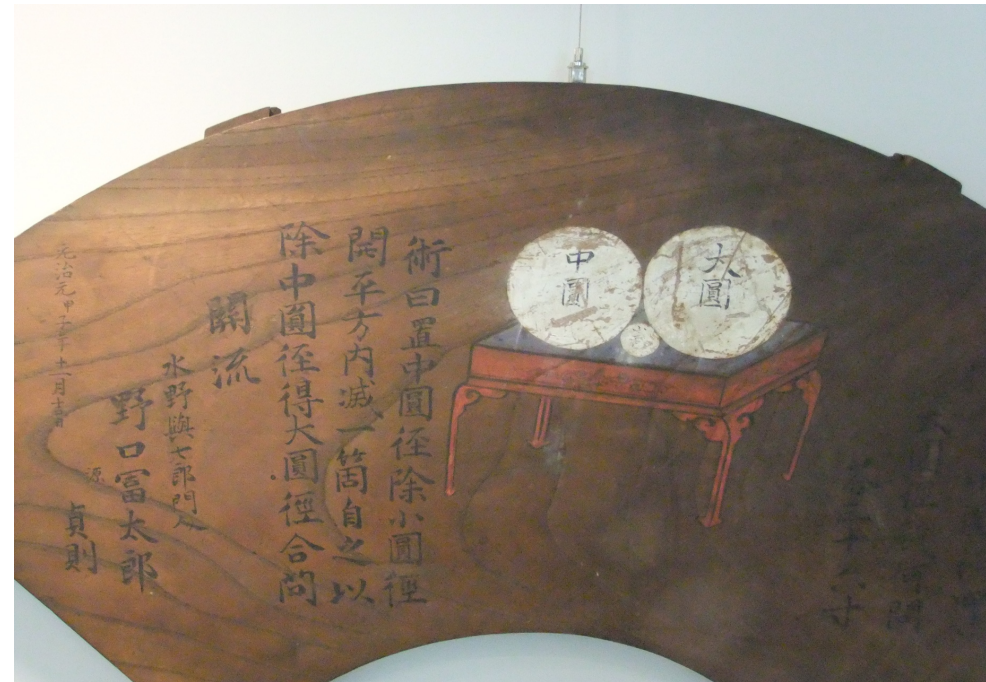 十六寸
大圓
中圓
術曰置中圓径除小圓徑
開平方内减一箇自之以
除中圓径得大圓徑合問
關流
水野與七郎門人
野口冨太郎
源貞則
元治元甲子年十一月